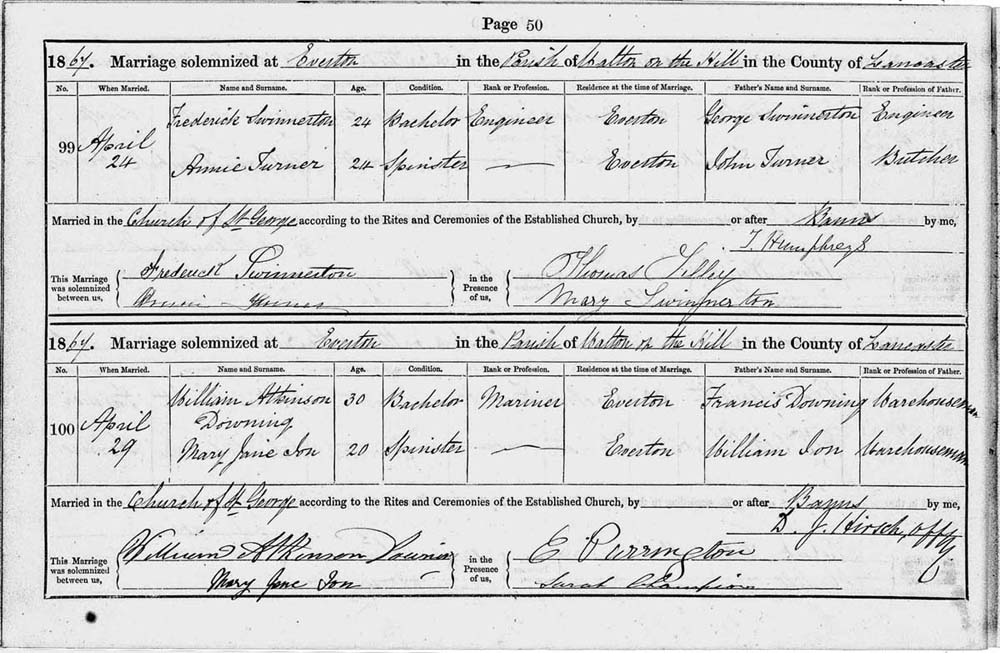 Page 50
1867. Marriage solemnized at Everton in the Parish of Walton on the Hill in the County of Lancaster
No. When Married. Name and Surname. Age. Condition. Rank or Profession. Residence at the time of Marriage. Father's Name and Surname. Rank or Profession of Father.
Frederick Swinnerton 24 Bachelor Engineer Everton George Swinnerton Engineer
99 April 24
Annie Turner 24 Spinster — Everton John Turner Butcher
Married in the Church of St George according to the Rites and Ceremonies of the Established Church, by or after Banns by me,
T. Humphreys
This Marriage was solemnized between us, Frederick Swinnerton in the Presence of us, Thomas Tilley
Annie Turner Mary Swinnerton
1867. Marriage solemnized at Everton in the Parish of Walton on the Hill in the County of Lancaster
No. When Married. Name and Surname. Age. Condition. Rank or Profession. Residence at the time of Marriage. Father's Name and Surname. Rank or Profession of Father.
William Atkinson 30 Bachelor Mariner Everton Francis Downing Warehouseman
Downing
100 April 29
Mary Jane Ion 20 Spinster — Everton William Ion Warehouseman
Married in the Church of St George according to the Rites and Ceremonies of the Established Church, by or after Banns by me,
D. J. Hirsch, Offg
This Marriage was solemnized between us, William Atkinson Downing in the Presence of us, E Purrington
Mary Jane Ion Sarah Champion